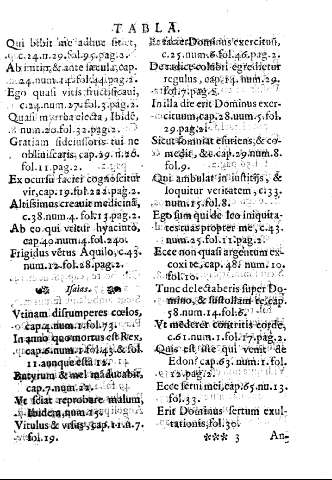 TABLA.
Qui bibit me adhuc sitet,
c.24.n.29.fol.95.pag.2.
Ab initio, & ante sæcula, cap.
24.num.14.fol.44.pag.2.
Ego quasi vitis fructificaui,
c.24.num.27.fol.3.pag.2.
Quasi myrrha electa, Ibidē,
num.20.fol.32.pag.2.
Gratiam fideiussoris tui ne
obliuiscaris, cap.29.n.26.
fol.11.pag.2.
Ex occursu faciei cognoscitur
vir, cap.19.fol.222.pag.2.
Altissimus creauit medicinā,
c.38.num.4.fol.13.pag.2.
Ab eo qui vtitur hyacinto,
cap.40.num.4.fol.240.
Frigidus vētus Aquilo, c.43.
num.12.fol.28.pag.2.
Isaias.
Vtinam disrumperes cœlos,
cap.4.num.1.fol.73.
In anno quo mortus est Rex,
cap.6.num.1.fol.43.& fol.
11.aunque està 12.
Butyrum & mel māducabit,
cap.7.num.22.
Vt sciat reprobare malum,
Ibidem, num.15.
Vitulus & vrsus, cap.11.n.7.
fol.19.
Et faciet Dominus exercituū,
c.25.num.6.fol.46.pag.2.
De radice colubri egredietur
regulus, cap.14.num.29.
fol.7.pag.2.
In illa die erit Dominus exer-
cituum, cap.28.num.5.fol.
29.pag.2.
Sicut somniat esuriens, & co-
medit, &c. cap.29.num.8.
fol.9.
Qui ambulat in iustitijs, &
loquitur veritatem, c.33.
num.15.fol.8.
Ego sum qui deleo iniquita-
tes tuas propter me, c.43.
num.25.fol.11.pag.2.
Ecce non quasi argentum ex-
coxi te, cap.48. num.10.
fol.10.
Tunc delectaberis super Do-
mino, & sustollam te, cap.
58.num.14.fol.6.
Vt mederer contritis corde,
c.61.num.1.fol.17.pag.2.
Quis est iste qui venit de
Edon? cap.63.num.1.fol.
12.pag.2.
Ecce serui mei, cap.65.nu.13.
fol.33.
Erit Dominus sertum exul-
tationis, fol.30.
*** 3 An-